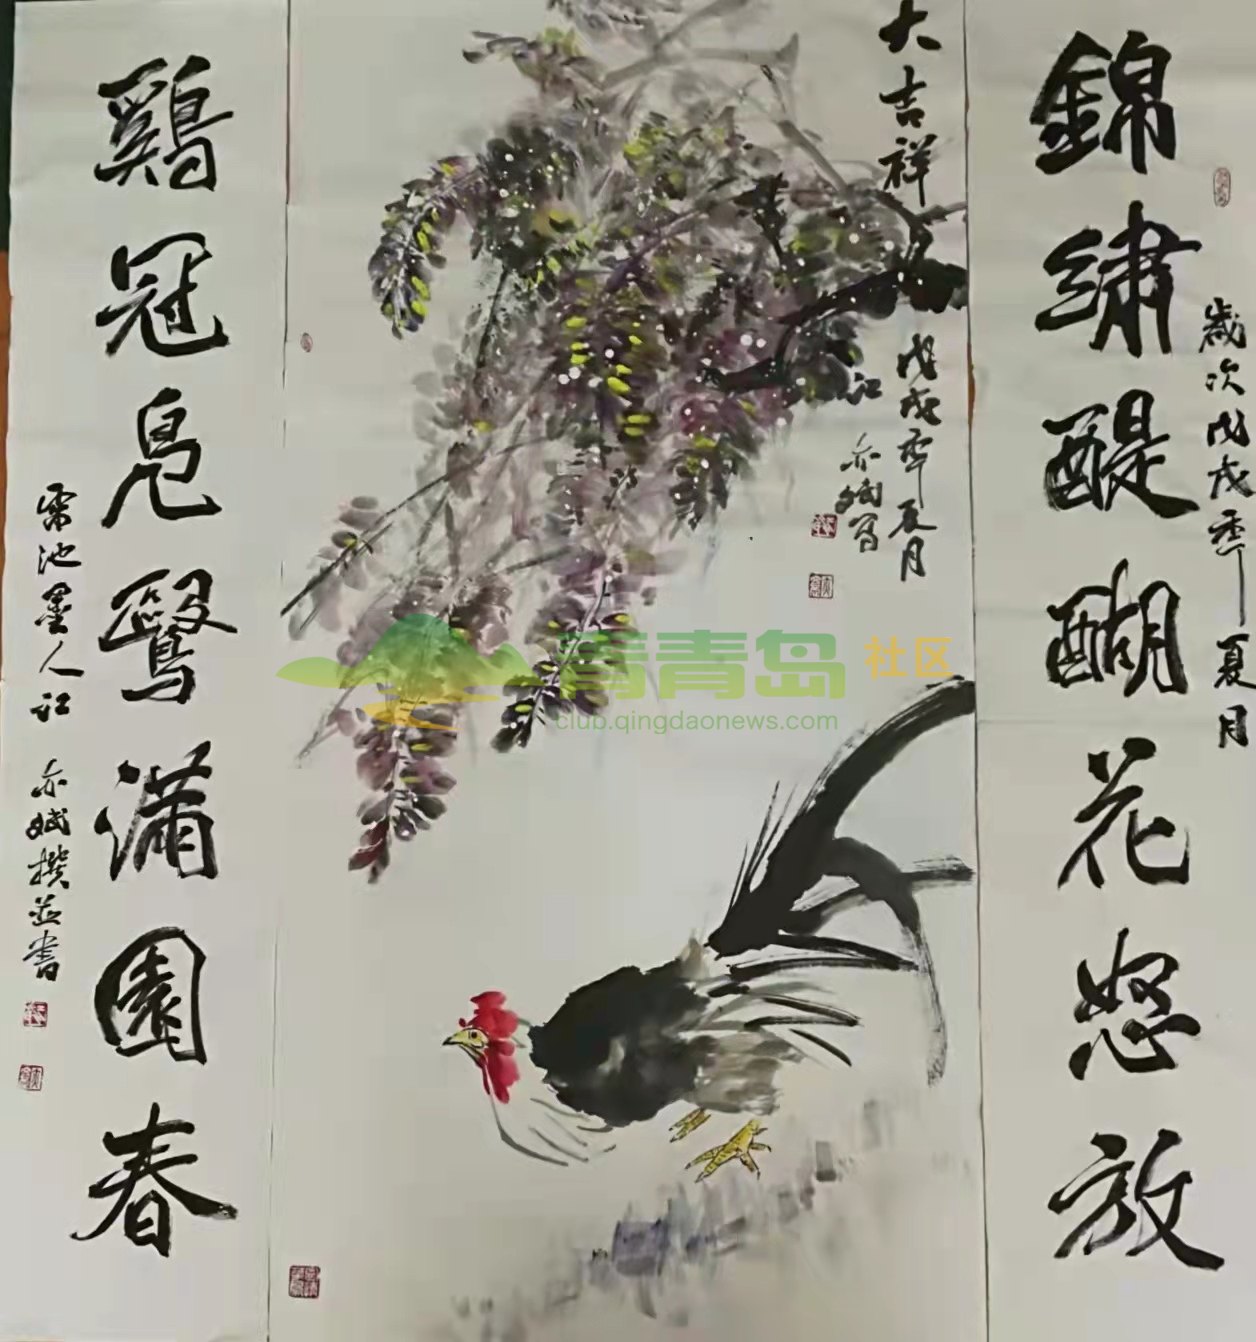 錦繡醍醐花怒放
歲次戊戌秊夏月
大吉祥
戊戌秊夏月
江亦斌写
鷄冠凫鷖滿園春
雷池墨人江亦斌撰並書
青青岛 社区
club.qingdaonews.com